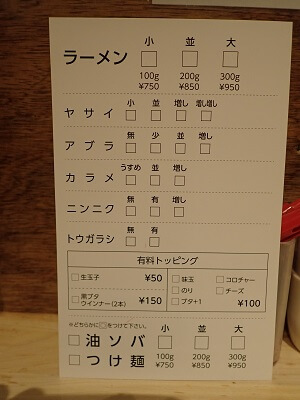 小 並 大
ラーメン □ □ □
100g 200g 300g
¥750 ¥850 ¥950
小 並 増し 増し増し
ヤサイ □ □ □ □
無 少 並 増し
アブラ □ □ □ □
うすめ 並 増し
カラメ □ □ □
無 有 増し
ニンニク □ □ □
無 有
トウガラシ □ □
有料トッピング
□生玉子 ¥50
□黒ブタウインナー(2本) ¥150
□味玉 □コロチャー
□のり □チーズ
□ブタ+1 ¥100
※どちらかに□をつけて下さい。
小 並 大
□油ソバ □ □ □
□つけ麺 100g 200g 300g
¥750 ¥850 ¥950